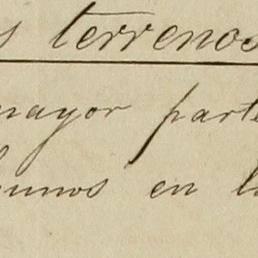 s terrenos
mayor parte
en l